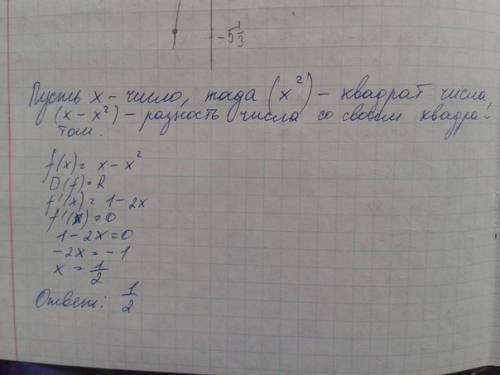 -5 1/3
Пусть х - число, тогда (x²) - квадрат числа,
(x - x²) - разность числа со своим квадра-
том.
f(x) = x - x²
D(f) = R
f'(x) = 1 - 2x
f'(x) = 0
1 - 2x = 0
-2x = -1
x = 1/2
Ответ: 1/2